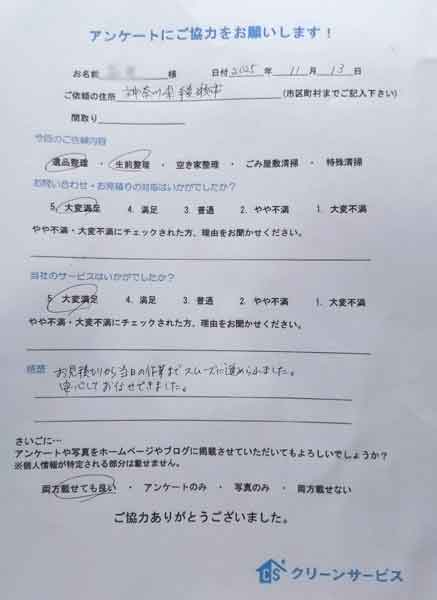 アンケートにご協力をお願いします！
お名前 様 日付 2025 年 11 月 13 日
ご依頼の住所 神奈川県綾瀬市 (市区町村までご記入下さい)
間取り
今回のご依頼内容
遺品整理 ・ 生前整理 ・ 空き家整理 ・ ごみ屋敷清掃 ・ 特殊清掃
お問い合わせ・お見積りの対応はいかがでしたか？
5. 大変満足 4. 満足 3. 普通 2. やや不満 1. 大変不満
やや不満・大変不満にチェックされた方、理由をお聞かせください。
当社のサービスはいかがでしたか？
5. 大変満足 4. 満足 3. 普通 2. やや不満 1. 大変不満
やや不満・大変不満にチェックされた方、理由をお聞かせください。
感想 お見積りから当日の作業までスムーズに進められました。
安心してお任せできました。
さいごに…
アンケートや写真をホームページやブログに掲載させていただいてもよろしいでしょうか？
※個人情報が特定される部分は載せません。
両方載せても良い ・ アンケートのみ ・ 写真のみ ・ 両方載せない
ご協力ありがとうございました。
CS クリーンサービス